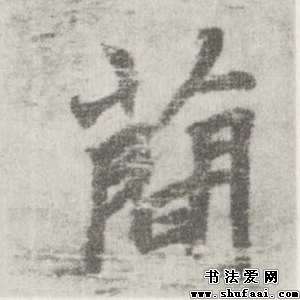 蕳
书法爱网
www.shufaai.com